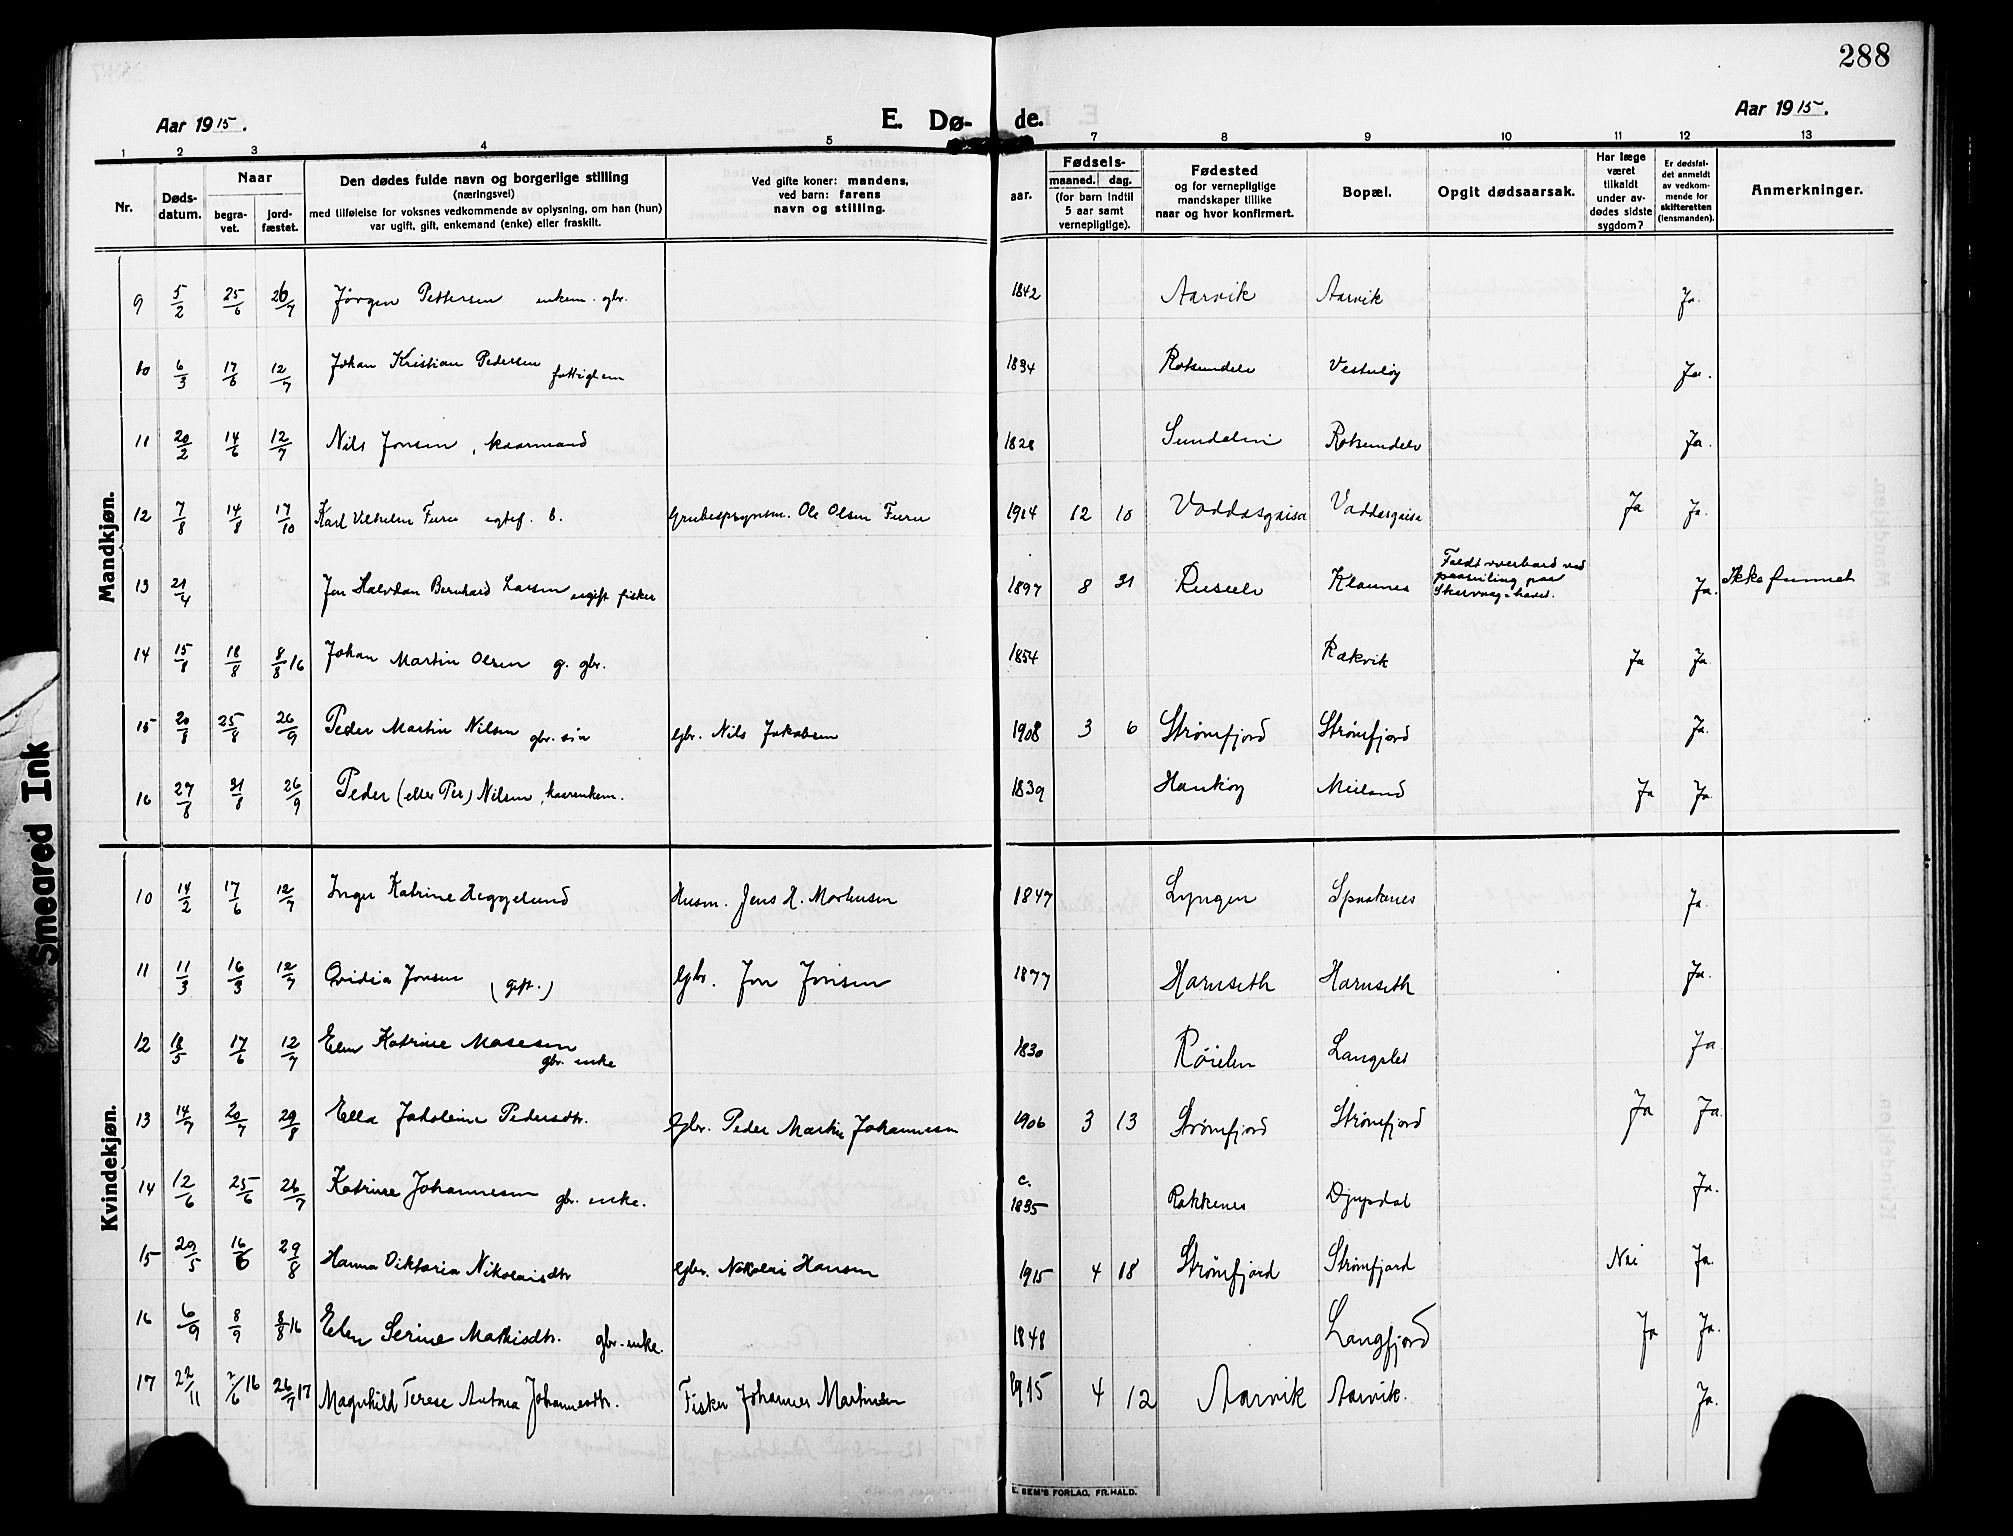 288
Aar 1915.
E. Dø- de.
Aar 1915.
1 2 3 4 5 7 8 9 10 11 12 13
Nr. Døds-datum. Naar begra-vet. jord-fæstet. Den dødes fulde navn og borgerlige stilling (næringsvei) med tilføielse for voksnes vedkommende av oplysning, om han (hun) var ugift, gift, enkemand (enke) eller fraskilt. Ved gifte koner: mandens, ved barn: farens navn og stilling. aar. Fødsels- maaned. dag. (for barn indtil 5 aar samt vernepligtige). Fødested og for vernepligtige mandskaper tillike naar og hvor konfirmert. Bopæl. Opgit dødsaarsak. Har læge været tilkaldt under av-dødes sidste sygdom? Er dødsfal-det anmeldt av vedkom-mende for skifteretten (lensmanden). Anmerkninger.
Mandkjøn.
9 5/2 25/6 26/7 Jørgen Pettersen enkem. gbr. 1842 Aarvik Aarvik Ja.
10 6/3 17/6 12/7 Johan Kristian Pedersen fattiglem 1834 Rotsundelv Ja.
11 20/2 14/6 12/7 Nils Jonsen, kaarmand 1828 Rotsundelv Ja.
12 7/8 14/8 17/10 Karl Vilhelm Furu egtef. b. Ole Olsen Furu 1914 12 10 Vaddasgaisa Vaddasgaisa Ja Ja.
13 21/4 Jon Halvdan Bernhard Larsen ugift fisker 1897 8 31 Klaunes Faldt overbord ved paa Ja. Ikke funnet
14 15/8 18/8 8/8 16 Johan Martin Olsen g. gbr. 1854 Rakvik Ja Ja.
15 20/8 25/8 26/9 Peder Martin Nilsen gbr. søn gbr. Nils Jakobsen 1908 3 6 Strømfjord Strømfjord Ja.
16 27/8 31/8 26/9 Peder (eller Per) Nilsen, kaarenkem. 1839 Haukøy Meiland Ja Ja.
Kvindekjøn.
10 14/2 17/6 12/7 Inger Katrine Heggelund Husm. Jens H. Mortensen 1847 Lyngen Spaakenes Ja.
11 11/3 16/3 12/7 Ovidia Jonsen (gift.) gbr. Jon Jonsen 1877 Hamseth Hamseth Ja.
12 18/5 17/6 12/7 Elen Katrine Mosesen gbr. enke 1830 Røielen Langslet Ja.
13 14/7 20/7 29/8 Ella Jakobine Pedersdtr. Gbr. Peder Martin Johannesen 1906 3 13 Strømfjord Strømfjord Ja Ja.
14 12/6 25/6 26/7 Katrine Johannesen gbr. enke. c. 1835 Rakkenes Djupdal Ja.
15 29/5 16/6 29/8 Hanna Viktoria Nikolaisdtr gbr. Nikolai Hansen 1915 4 18 Strømfjord Strømfjord Nei Ja.
16 6/9 8/9 8/8 16 Elen Serine Mathisdtr. gbr. enke. 1848 Langfjord Ja Ja.
17 22/11 7/6 16 26/7 17 Magnhild Terese Antona Johannesdtr. Fisker Johannes Martinsen 1915 4 12 Aarvik Aarvik. Ja.
E. SEM'S FORLAG, FR.HALD.
Smeared Ink